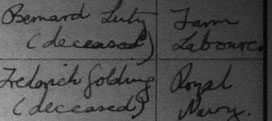 Bernard Luty Farm
(deceased) Labourer.
Frederick Golding Royal
(deceased) Navy.